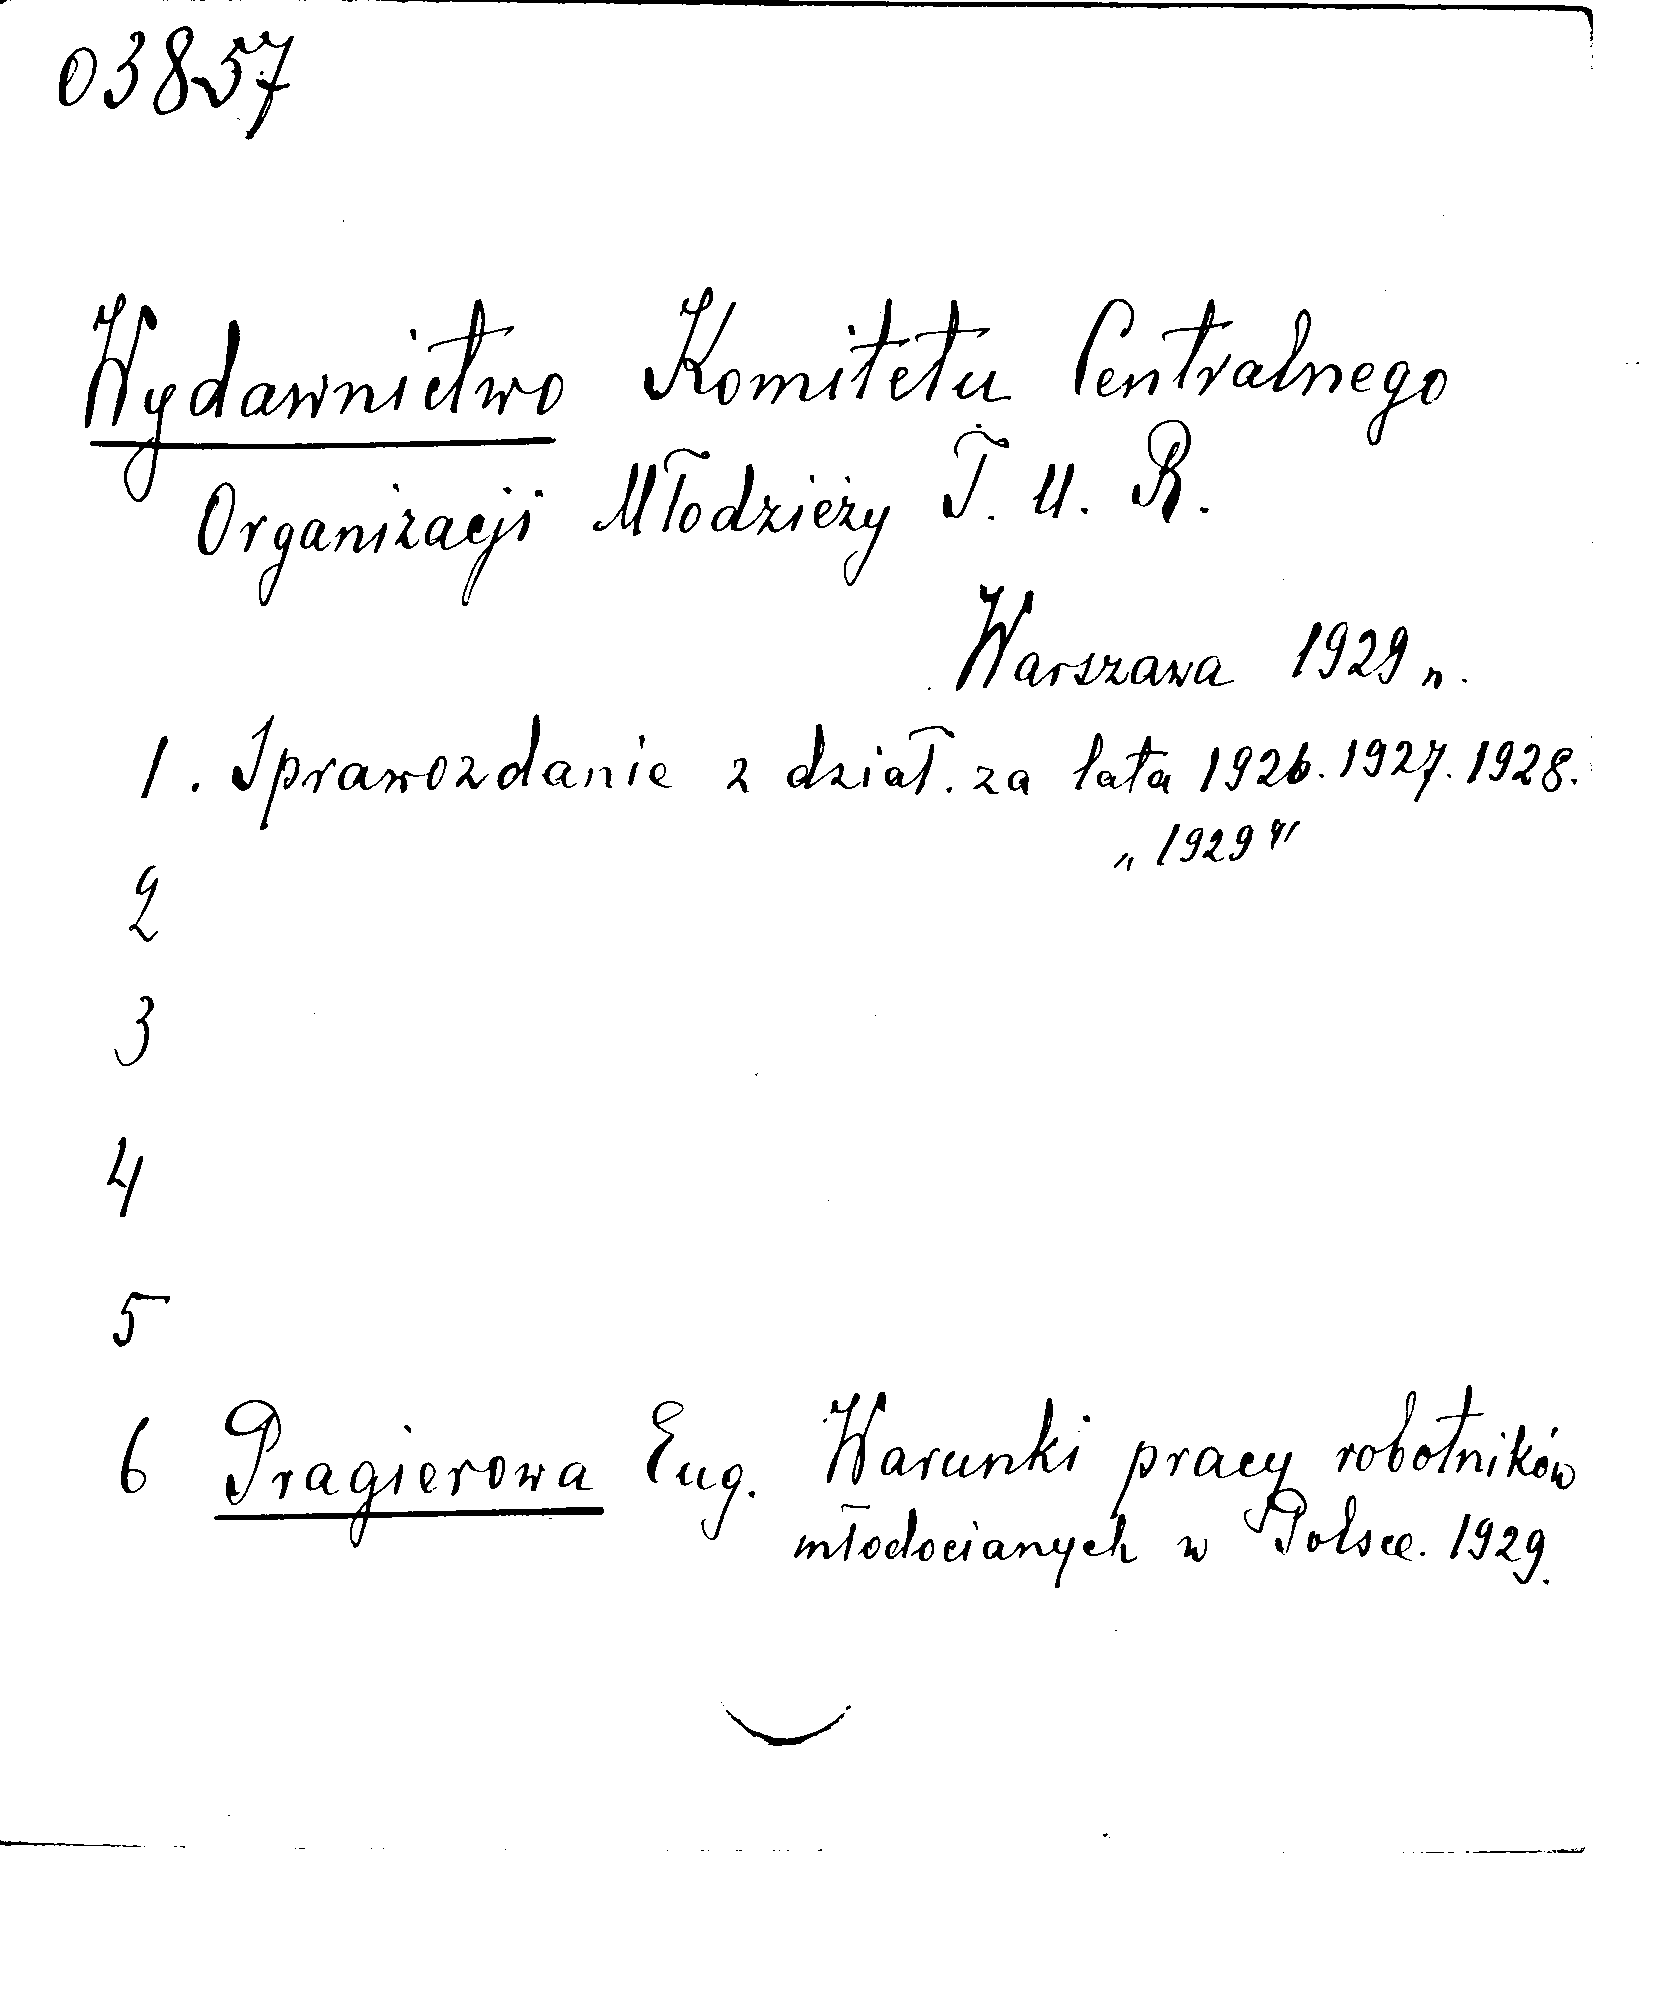 03857
Wydawnictwo Komitetu Centralnego
Organizacji Młodzieży T. U. R.
Warszawa 1929 r.
1. Sprawozdanie z dział. za lata 1926. 1927. 1928.
„ 1929 "
2
3
4
5
6 Pragierowa Eug. Warunki pracy robotników
młodocianych w Polsce. 1929.